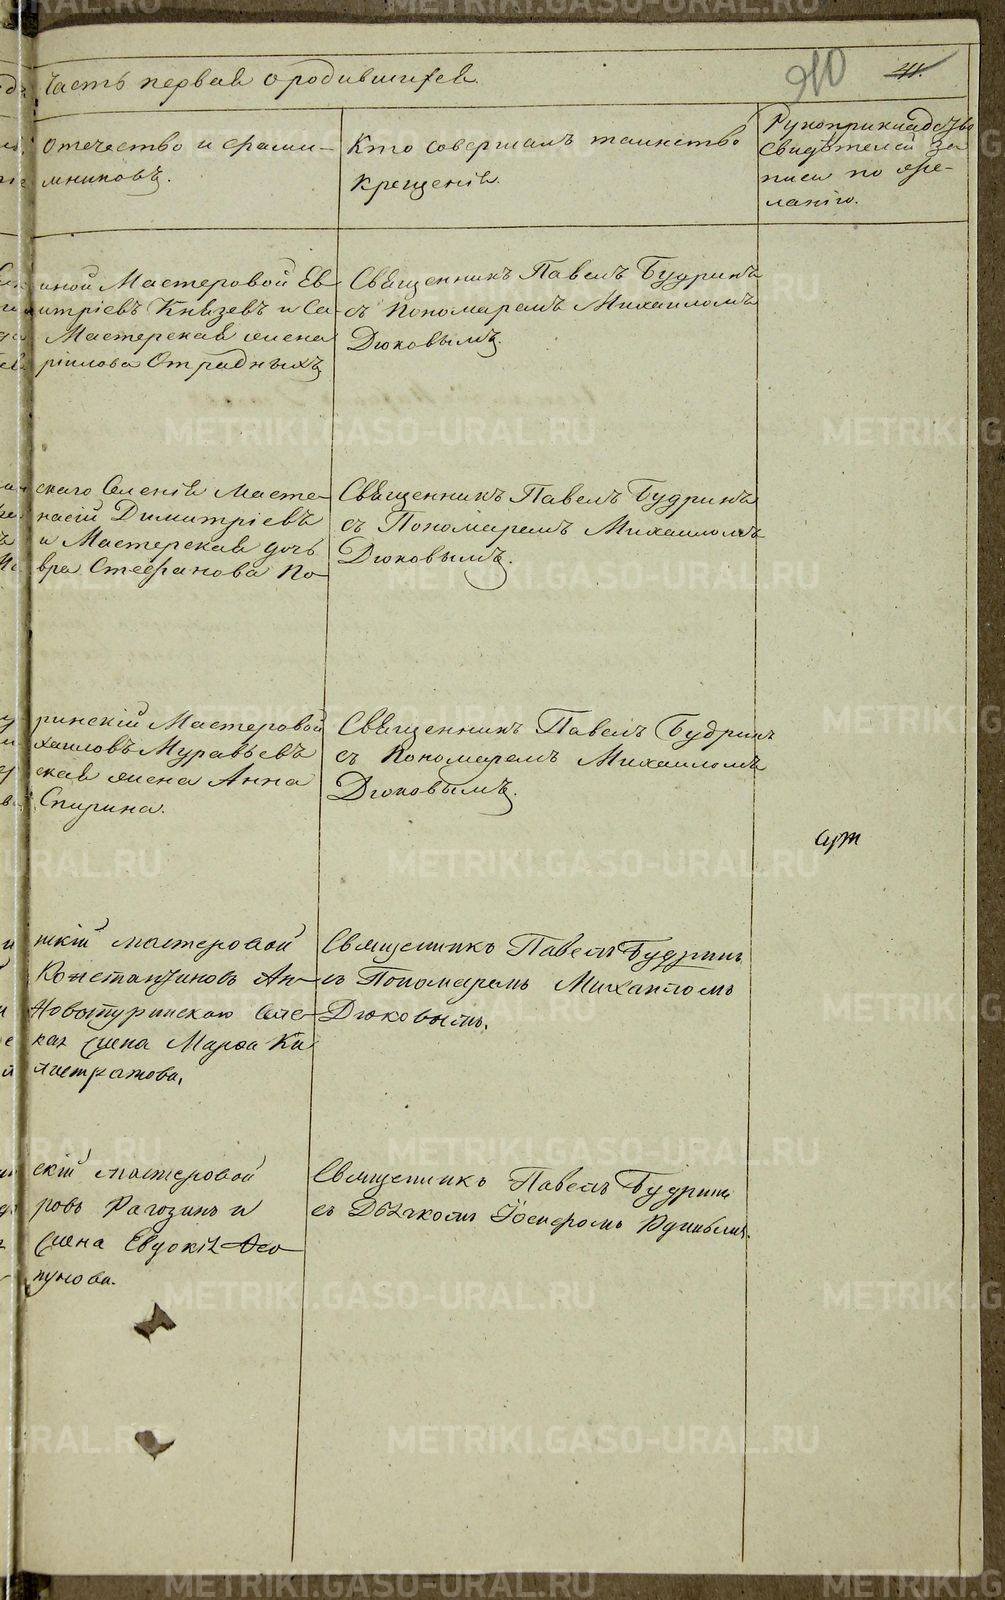 Часть первая о родившихся.
40
Отечество и фами-
мниковъ.
Кто совершалъ таинство
крещенія.
Рукоприкладство
свидѣтелей за
писи по же-
ланію.
иной Мастеровой Ев
итріевъ Князевъ и Са-
Мастерская жена
ріилова Отрадныхъ
Священникъ Павелъ Будринъ
съ Пономаремъ Михаиломъ
Дюковымъ.
скаго Селенія Масте-
насій Димитріевъ
и Мастерская дочь
вра Стефанова По-
Священникъ Павелъ Будринъ
съ Пономаремъ Михаиломъ
Дюковымъ.
ринскій Мастеровой
хаиловъ Муравьевъ
ская жена Анна
Спирина.
Священникъ Павелъ Будринъ
съ Пономаремъ Михаиломъ
Дюковымъ.
нскій мастеровой
Константиновъ Ан-
Новотуринскаго Селе-
кая жена Марѳа Ка
листратова.
Священникъ Павелъ Будринъ
съ Пономаремъ Михаиломъ
Дюковымъ.
скій мастеровой
ровъ Рагозинъ и
жена Евдокія
пунова.
Священникъ Павелъ Будринъ
съ Дьячкомъ Іосифомъ
METRIKI.GASO-URAL.RU